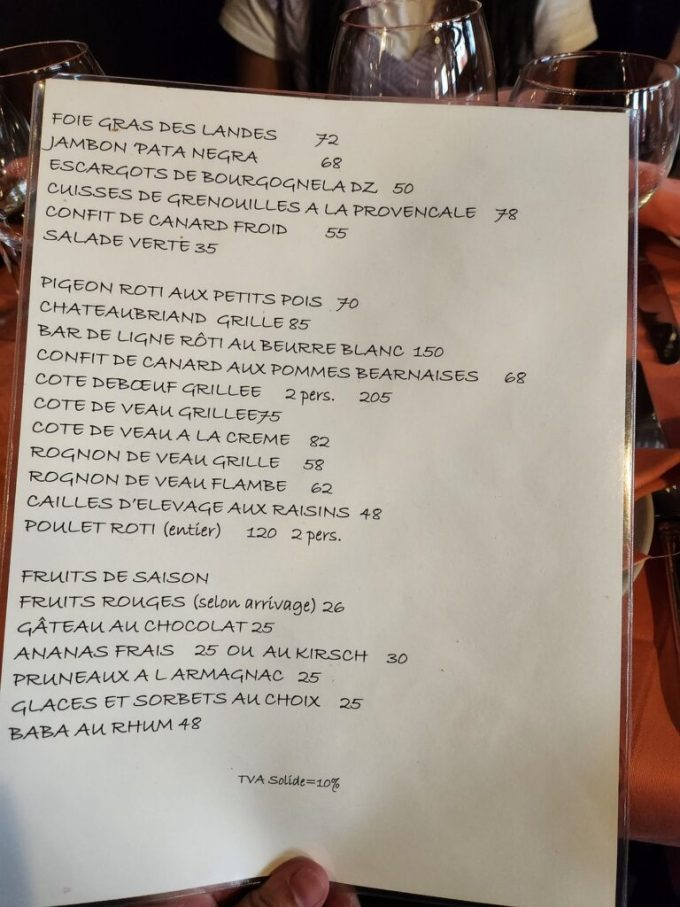 FOIE GRAS DES LANDES 72
JAMBON PATA NEGRA 68
ESCARGOTS DE BOURGOGNELA DZ 50
CUISSES DE GRENOUILLES A LA PROVENCALE 78
CONFIT DE CANARD FROID 55
SALADE VERTE 35
PIGEON ROTI AUX PETITS POIS 70
CHATEAUBRIAND GRILLE 85
BAR DE LIGNE RÔTI AU BEURRE BLANC 150
CONFIT DE CANARD AUX POMMES BEARNAISES 68
COTE DEBŒUF GRILLEE 2 pers. 205
COTE DE VEAU GRILLEE75
COTE DE VEAU A LA CREME 82
ROGNON DE VEAU GRILLE 58
ROGNON DE VEAU FLAMBE 62
CAILLES D'ELEVAGE AUX RAISINS 48
POULET ROTI (entier) 120 2 pers.
FRUITS DE SAISON
FRUITS ROUGES (selon arrivage) 26
GÂTEAU AU CHOCOLAT 25
ANANAS FRAIS 25 OU AU KIRSCH 30
PRUNEAUX A L ARMAGNAC 25
GLACES ET SORBETS AU CHOIX 25
BABA AU RHUM 48
TVA Solide=10%